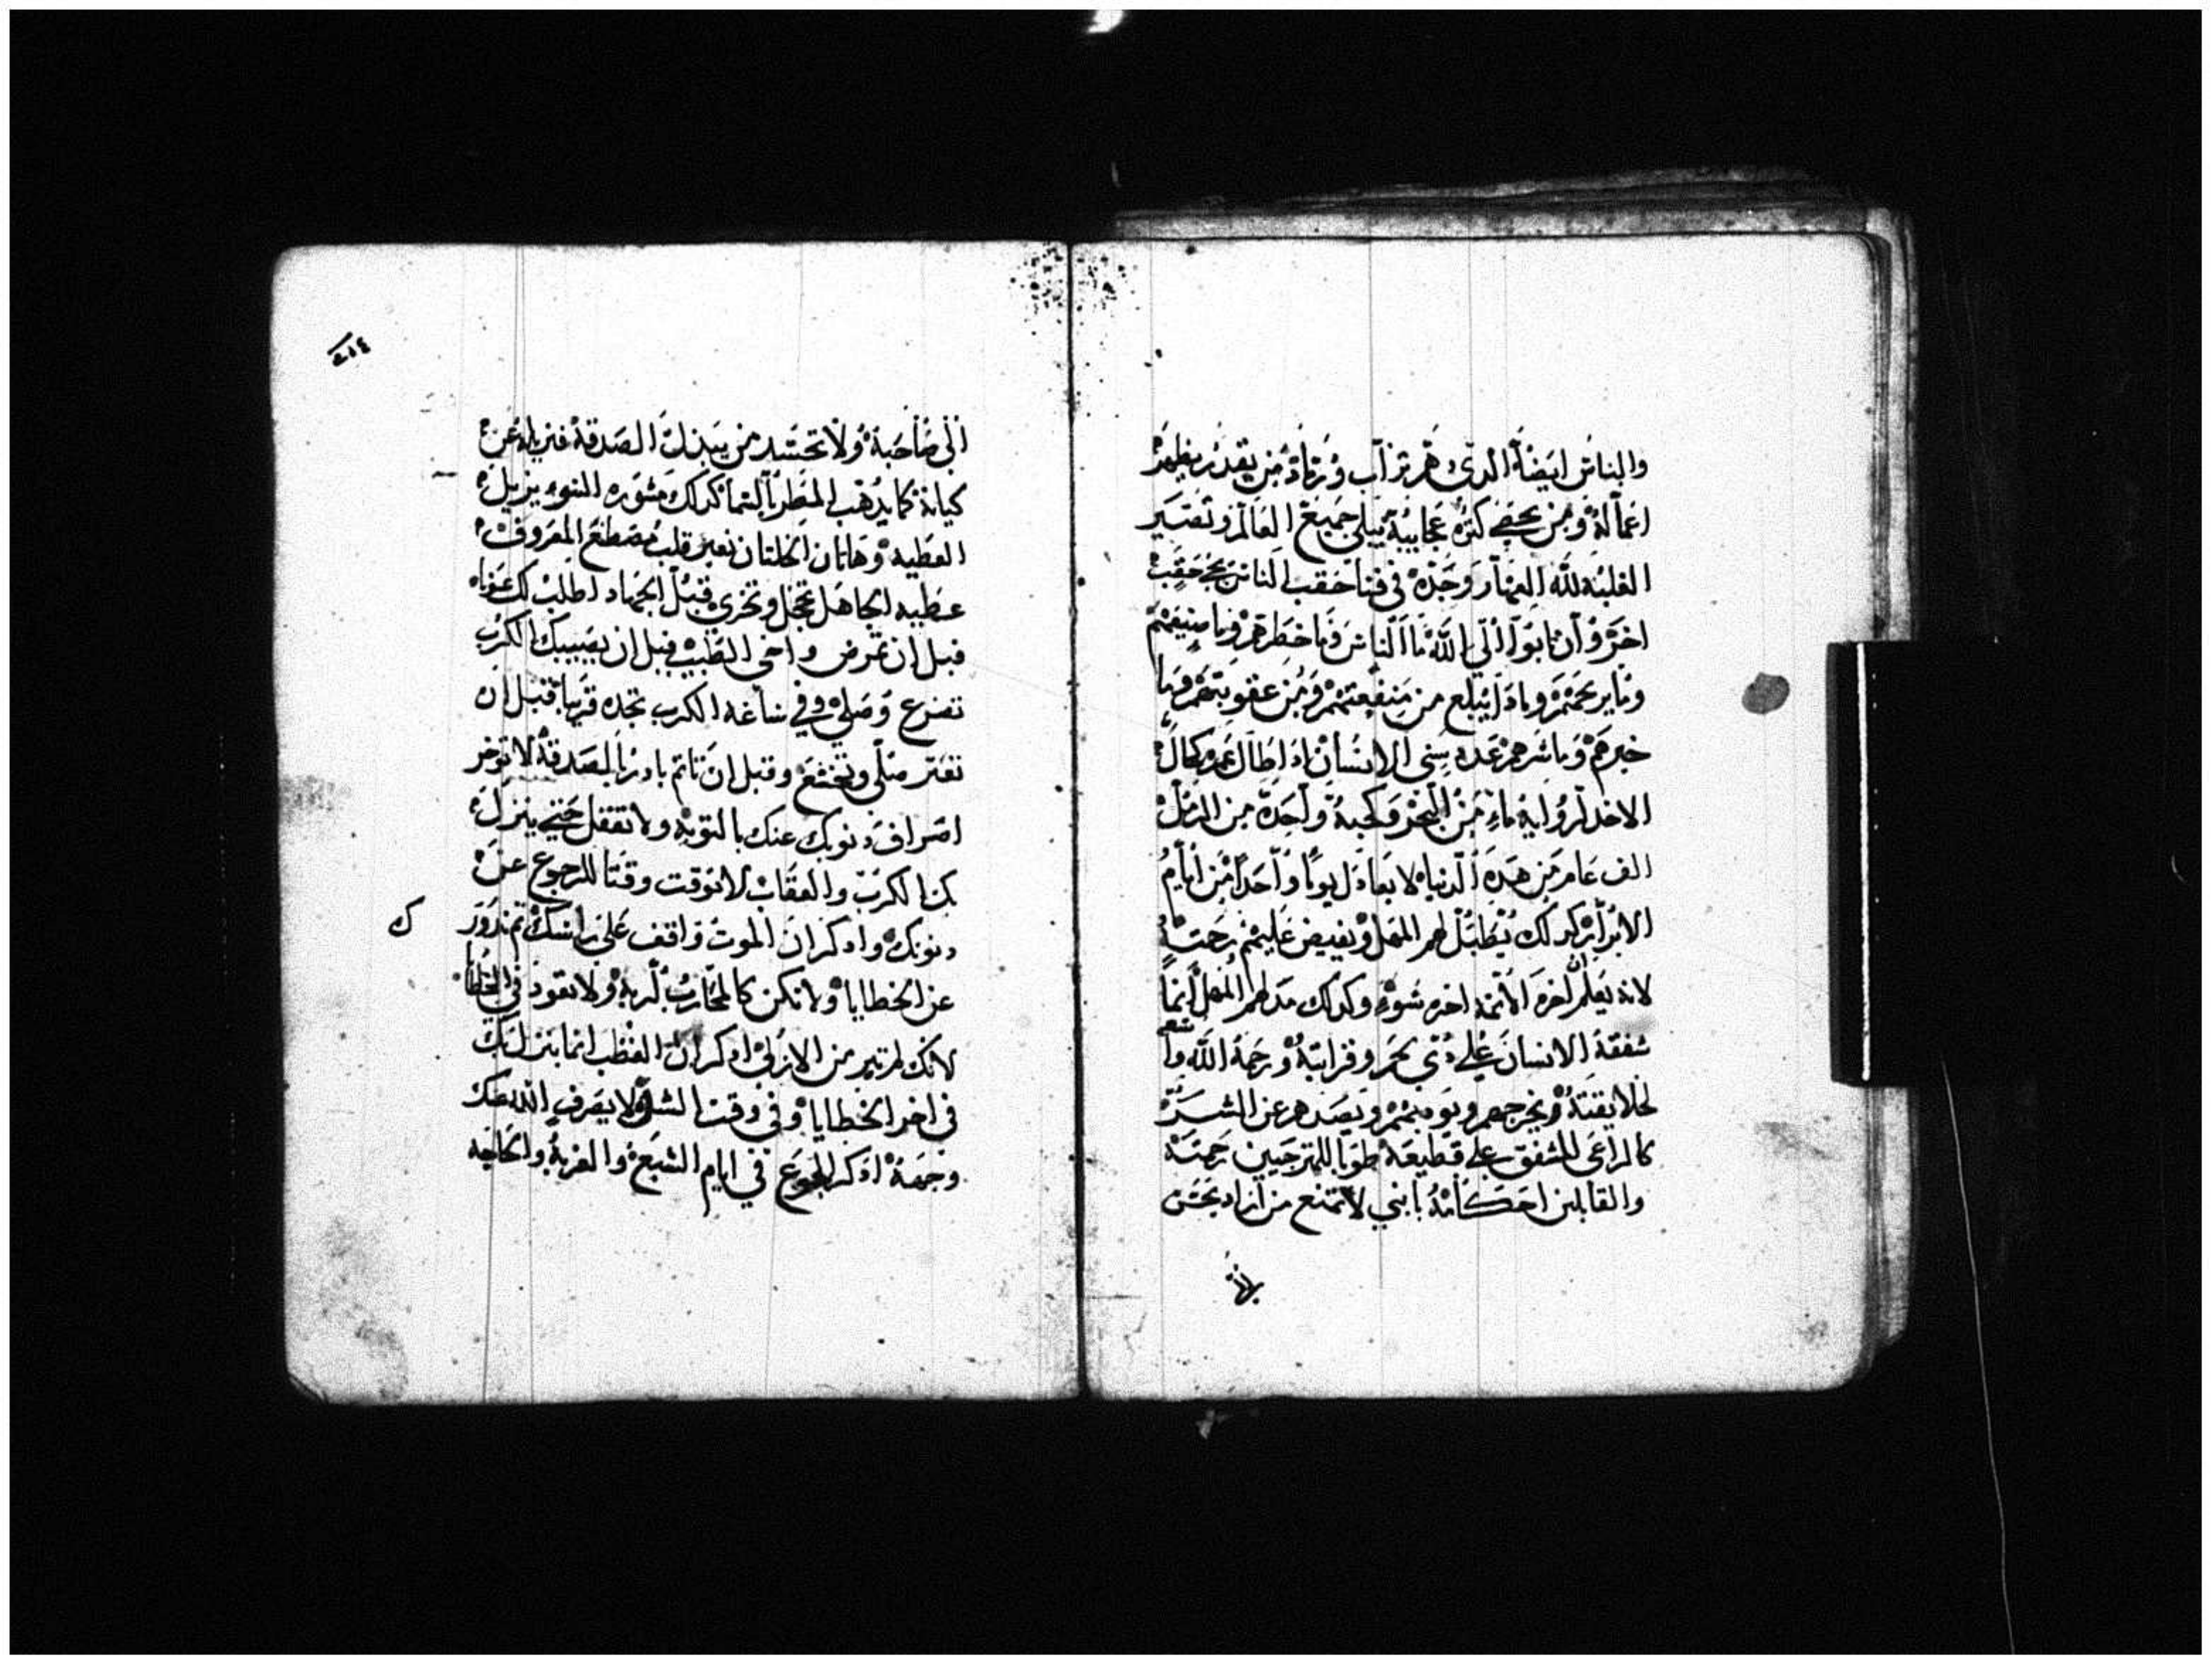 والناس ايضاً الذى هم تراب ورماد من يقدر يظهر
اعماله ومن يحصي كثره عجايبه يبلى جميع العالم وتصير
الغلبه لله وحده في فنا حقب الناس يجى حقب
اخر وان تابوا الي الله ما الناس وما خطرهم وما منفعتهم
وما يرحمهم وماذا يبلغ من منفعتهم ومن عقوبتهم وما
خيرهم وما شرهم عدد سني الانسان اذا طال عمره كال
الاخد لروايه ماء من البحر وكحبة واحدة من الرمل
الف عام من هده الدنيا لا يعادل يوماً واحداً من ايام
الابرار كدلك يطيل لهم المهل ويفيض عليهم رحمته
لانه يعلم ان اخره اخره سوء وكدلك مد لهم المهل انما
شفقة الانسان علي دي رحم وقرابته ورحمة الله واسعه
ويخرجهم ويصدهم عن الشر
كالراعى المشفق على قطيعه طوبا للمترجيين رحمته
والقابلين احكامه يا بني لا تمنع من اراد يحسن
الى صاحبه ولا تحسد من يبدل الصدقة فتزيله عن
كيانه كما يدهب المطر بالسما كدلك مشوره السوء يزيل
العطيه وهاتان الخلتان تعير قلب مصطنع المعروف
عطيه الجاهل تخجل وتخزى قبل الجهاد اطلب لك عونا
قبل ان تمرض واخي الطبيب قبل ان يصيبك الكرب
تضرع وصلي وفي ساعة الكرب تجده قريباً قبل ان
تعتر صلي وتخشع وقبل ان تاتم بادر بالصدقة لا توخر
انصراف دنوبك عنك بالتوبه ولا تغفل حتي ينزل
بك الكرب والعقاب لا توقت وقتا للرجوع عن
دنوبك وادكر ان الموت واقف على راسك تم تدور
عن الخطايا ولا تكن كالمحارب لربه ولا تعود في الخطا
لانك ادكر ان الغضب انما ينزل بك
في اخر الخطايا وفي وقت الشر لا يصرف الله عنك
وجهه ادكر الجوع في ايام الشبع والغربة والحاجه